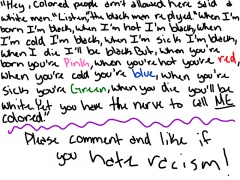 "Hey, colored people ain't allowed here said a
white men." Listen, the black men replyed." When I'm
born I'm black, when I'm hot I'm black, when
I'm cold I'm black, when I'm sick I'm black,
when I die I'll be black. But, when you're
born you're Pink, when you're hot you're red,
when you're cold you're blue, when you're
sick you're Green, when you die you'll be
white. Yet you have the nerve to call ME
colored."
Please comment and like if
you hate racism!